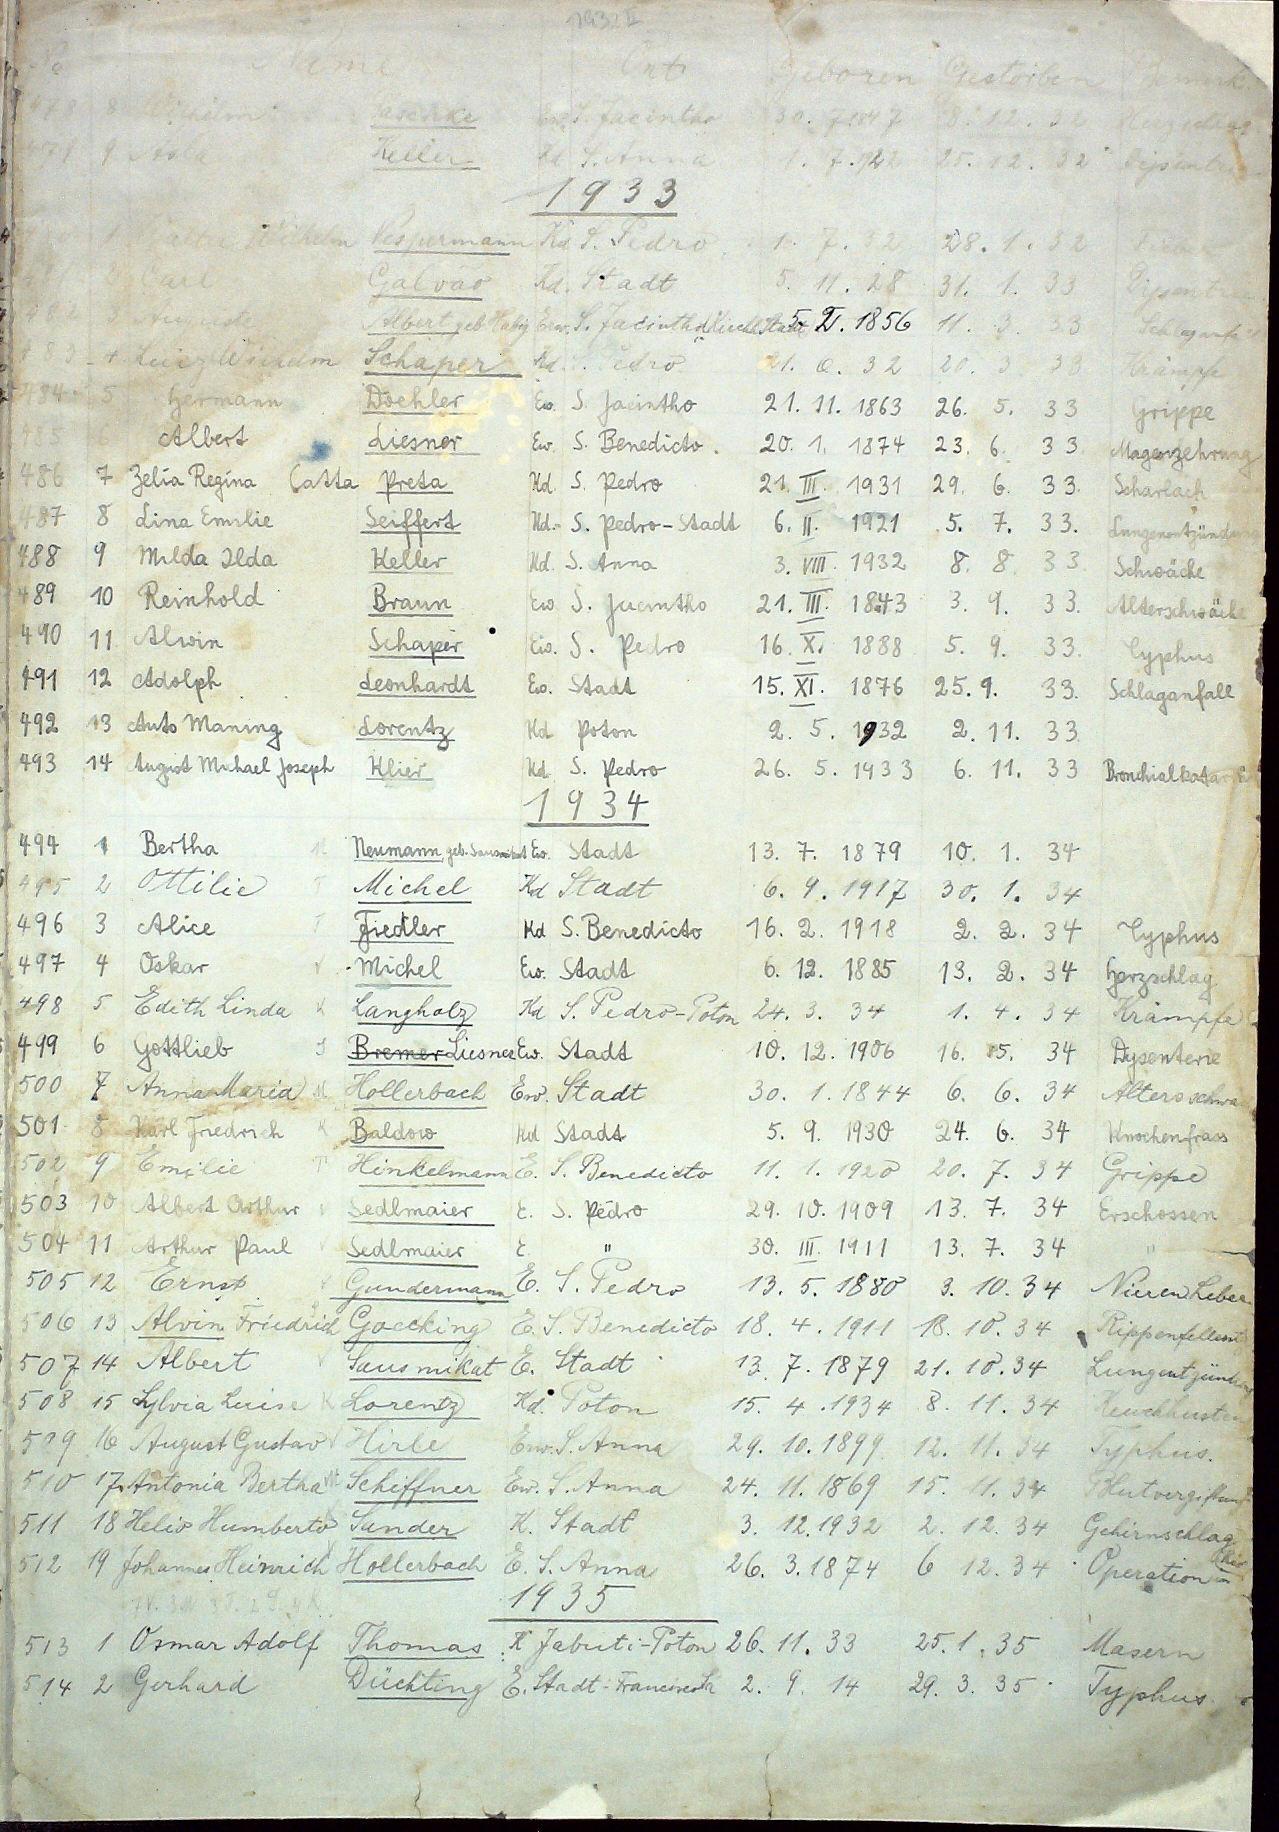 Name Ort Geboren Gestorben Bemerk.
478 8 Wilhelm Ew. S. Jacintho 30. 7. 1847 8. 12. 32
479 9 Keller Kd S. Anna 1. 7. 1922 25. 12. 32
1933
1 Wilhelm Vespermann Kd. S. Pedro 1. 7. 32 28. 1. 32
Carl Galvão Kd. Stadt 5. 11. 28 31. 1. 33
482 3 Albert geb. Ew. S. Jacintho 1856 11. 3. 33 Schlaganfall
483 4 Schaper Kd. Pedro 32 20. 3. 33 Krämpfe
484 5 Hermann Doehler Ew. S. Jacintho 21. 11. 1863 26. 5. 33 Grippe
485 6 Albert Liesner Ew. S. Benedicto. 20. 1. 1874 23. 6. 33 Magenzehrung
486 7 Zelia Regina Catta Preta Kd. S. Pedro 21. III. 1931 29. 6. 33. Scharlach
487 8 Lina Emilie Seiffert Kd. S. Pedro-Stadt 6. II. 1921 5. 7. 33. Lungenentzündung
488 9 Milda Ilda Keller Kd. S. Anna 3. VIII. 1932 8. 8. 33 Schwäche
489 10 Reinhold Braun Ew. S. Jacintho 21. III. 1843 3. 9. 33. Alterschwäche
490 11 Alwin Schaper Ew. S. Pedro 16. X. 1888 5. 9. 33. Typhus
491 12 Adolph Leonhardt Ew. Stadt 15. XI. 1876 25. 9. 33. Schlaganfall
492 13 Auto Maning Lorentz Kd Poton 2. 5. 1932 2. 11. 33
493 14 August Michael Joseph Klier Kd. S. Pedro 26. 5. 1933 6. 11. 33 Bronchialkatarrh
1934
494 1 Bertha Neumann, geb. Sausmikat Ew. Stadt 13. 7. 1879 10. 1. 34
495 2 Ottilie T Michel Kd Stadt 6. 9. 1917 30. 1. 34
496 3 Alice T Fiedler Kd S. Benedicto 16. 2. 1918 2. 2. 34 Typhus
497 4 Oskar V Michel Ew. Stadt 6. 12. 1885 13. 2. 34 Herzschlag
498 5 Edith Linda K Langholz Kd S. Pedro-Poton 24. 3. 34 1. 4. 34 Krämpfe
499 6 Gottlieb J Bremer Liesner Ew. Stadt 10. 12. 1906 16. 5. 34 Dysenterie
500 7 Anna Maria M Hollerbach Ew. Stadt 30. 1. 1844 6. 6. 34
501 8 Karl Friedrich K Baldow Kd Stadt 5. 9. 1930 24. 6. 34 Knochenfrass
502 9 Emilie T Hinkelmann E. S. Benedicto 11. 1. 1920 20. 7. 34 Grippe
503 10 Albert Arthur V Sedlmaier E. S. Pedro 29. 10. 1909 13. 7. 34 Erschossen
504 11 Arthur Paul V Sedlmaier E. " 30. III. 1911 13. 7. 34 "
505 12 Ernst Gundermann E. S. Pedro 13. 5. 1880 3. 10. 34 Nieren Leber
506 13 Alvin Friedrich Goecking E. S. Benedicto 18. 4. 1911 18. 10. 34
507 14 Albert V Sausmikat E. Stadt 13. 7. 1879 21. 10. 34 Lungentzündung
508 15 Sylvia Luise K Lorentz Kd. Poton 15. 4. 1934 8. 11. 34 Keuchhusten
509 16 August Gustav V Hirle Erw. S. Anna 29. 10. 1899 12. 11. 34 Typhus.
510 17 Antonia Bertha M Schiffner Ew. S. Anna 24. 11. 1869 15. 11. 34 Blutvergiftung
511 18 Helio Humberto Sander K. Stadt 3. 12. 1932 2. 12. 34 Gehirnschlag
512 19 Johannes Heinrich Hollerbach E. S. Anna 26. 3. 1874 6 12. 34 Operation
1935
513 1 Osmar Adolf Thomas K Jabuti-Poton 26. 11. 33 25. 1. 35 Masern
514 2 Gerhard Düchting E. Stadt- 2. 9. 14 29. 3. 35 Typhus